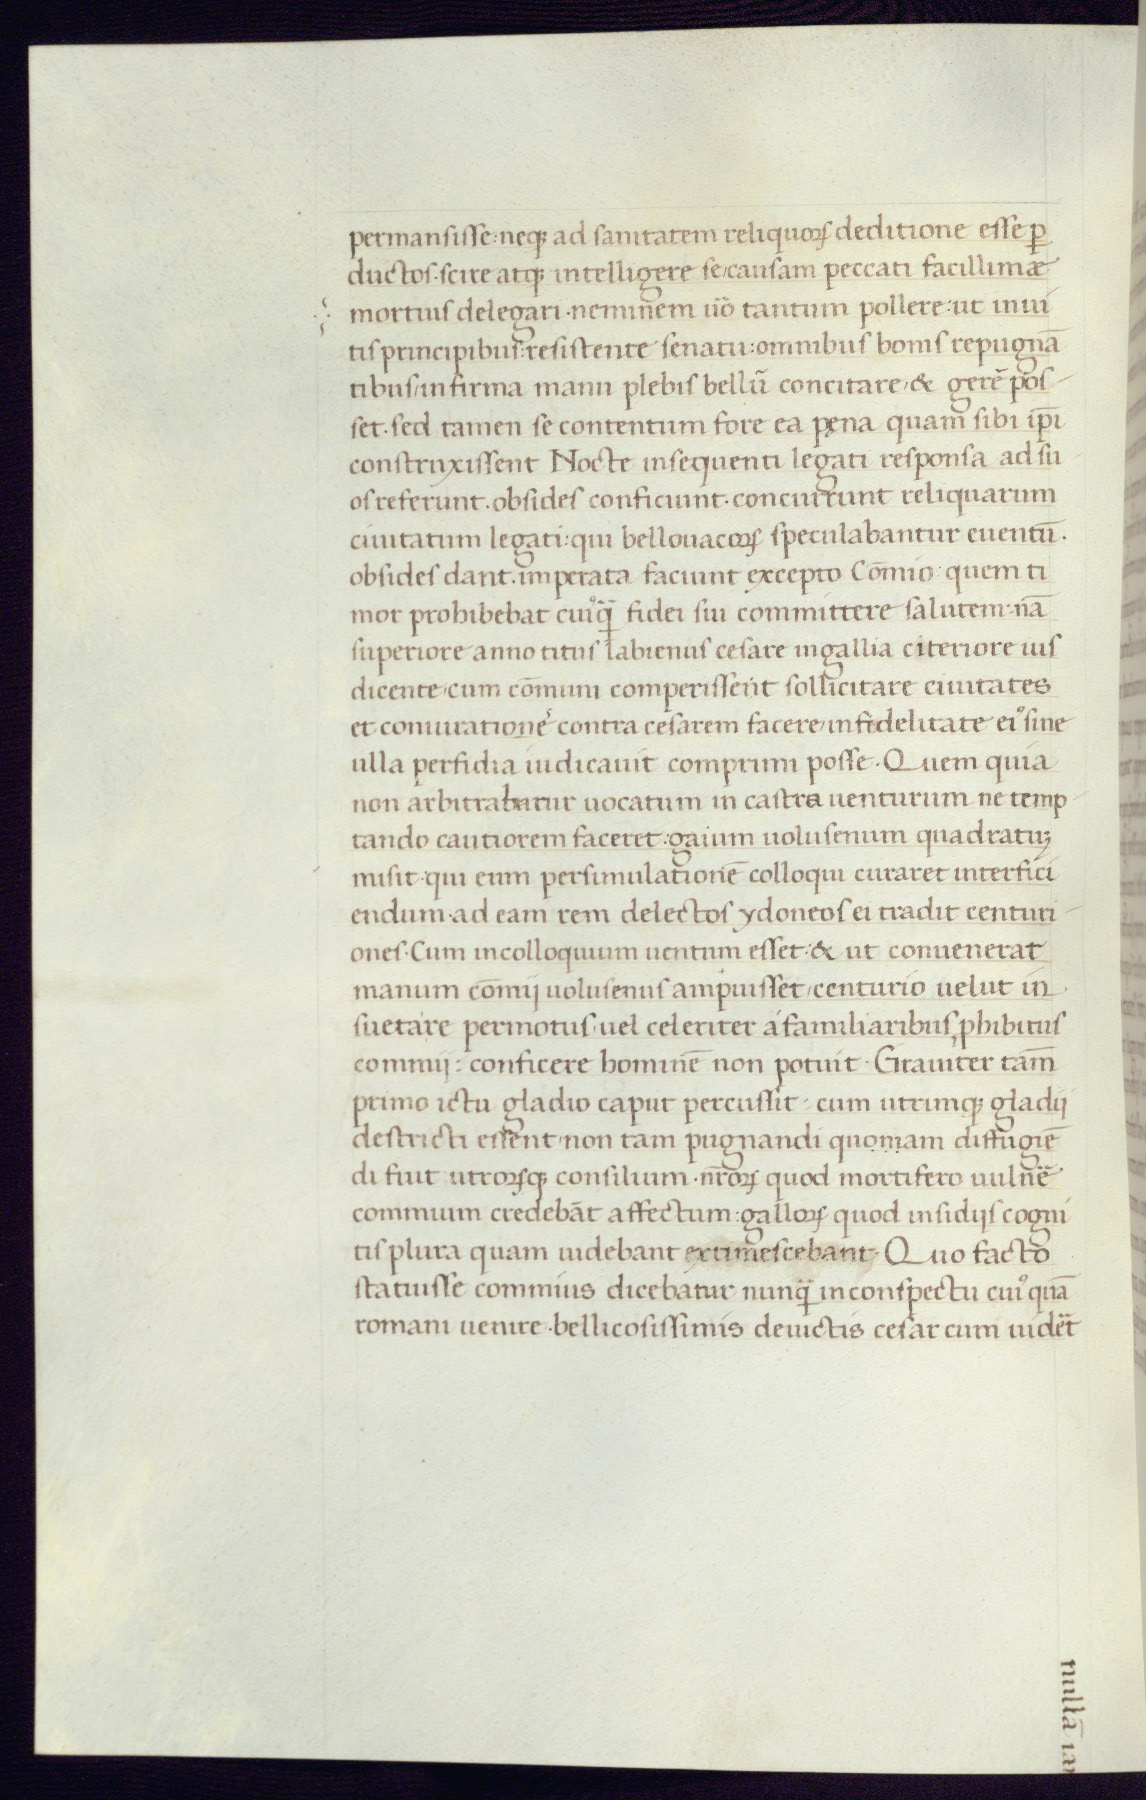 permansisse: neqꝫ ad sanitatem reliquoꝝ deditione esse ꝑ
ductos. scire atqꝫ intelligere se/causam peccati facillimæ
mortius delegari. neminem u̅o̅ tantum pollere: ut inui
tis principibus: resistente senatu: omnibus bonis repugnā
tibus/infirma manu plebis bellū concitare/& gerē pos-
set. sed tamen se contentum fore ea pęna quam sibi ip̅i
construxissent Nocte insequenti legati responsa ad su
os referunt. obsides conficiunt. concurrunt reliquarum
ciuitatum legati: qui bellouacoꝝ speculabantur euentū.
obsides dant. imperata faciunt excepto Com̅io: quem ti
mor prohibebat cuiꝰq̄ fidei sui committere salutem. nā
superiore anno titus labienus cesare in gallia citeriore ius
dicente/cum com̅um comperissent sollicitare ciuitates
et coniurationē contra cesarem facere/infidelitate eiꝰ sine
ulla perfidia iudicauit comprimi posse. Quem quia
non arbitrabatur uocatum in castra uenturum ne temp-
tando cautiorem faceret. gaium uolusenum quadratuꝫ
misit. qui eum per simulationē colloqui curaret interfici
endum. ad eam rem delectos ydoneos ei tradit centuri-
ones. Cum in colloquium uentum esset. & ut conuenerat
manum com̅ij uolusenus arripuisset/centurio uelut in
suetare permotus/uel celeriter a familiaribus ꝓhibitus
commij: conficere hominē non potuit. Grauiter tam̅
primo ictu gladio caput percussit. cum utrimqꝫ gladij
destricti essent/non tam pugnandi quoniam diffugiē
di fuit utroꝝqꝫ consilium. nr̅oꝝ quod mortifero uulnē
commium credebāt affectum: galloꝝ quod insidijs cogni
tis plura quam uidebant extimescebant. Quo facto
statuisse commius dicebatur nunq̄ in conspectu cuiꝰquā
romani uenire. bellicosissimis deuictis cesar cum uidēt
nullā